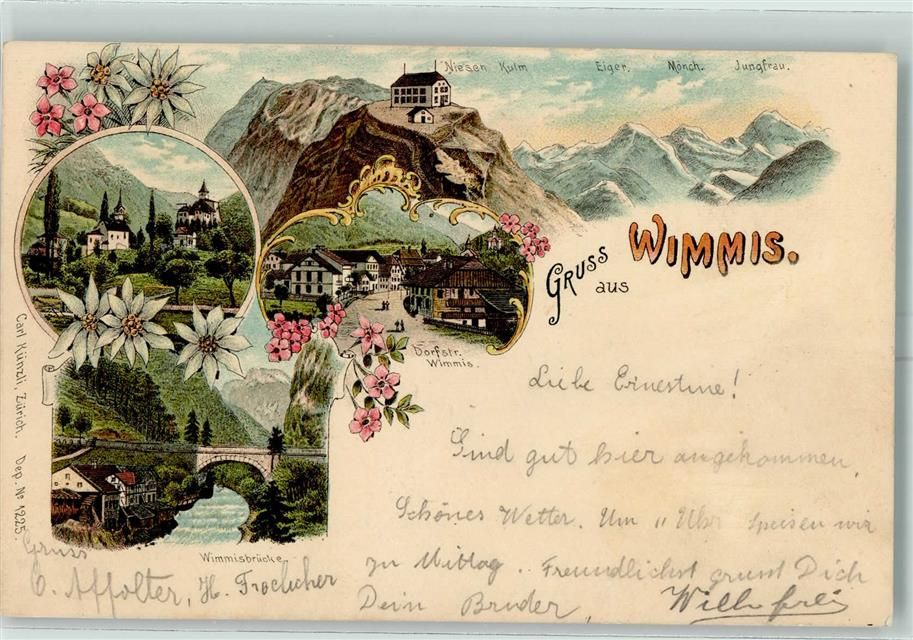 Niesen Kulm
Eiger. Mönch. Jungfrau.
Gruss aus WIMMIS.
Dorfstr.
Wimmis.
Wimmisbrücke
Carl Künzli, Zürich. Dep. No 1225.
Liebe Ernestine!
Sind gut hier angekommen,
Schönes Wetter. Um 11 Uhr speisen wir
zu Mittag .. Freundlichst grüsst Dich
Dein Bruder,
Gruss
Affolter, H. Froelicher